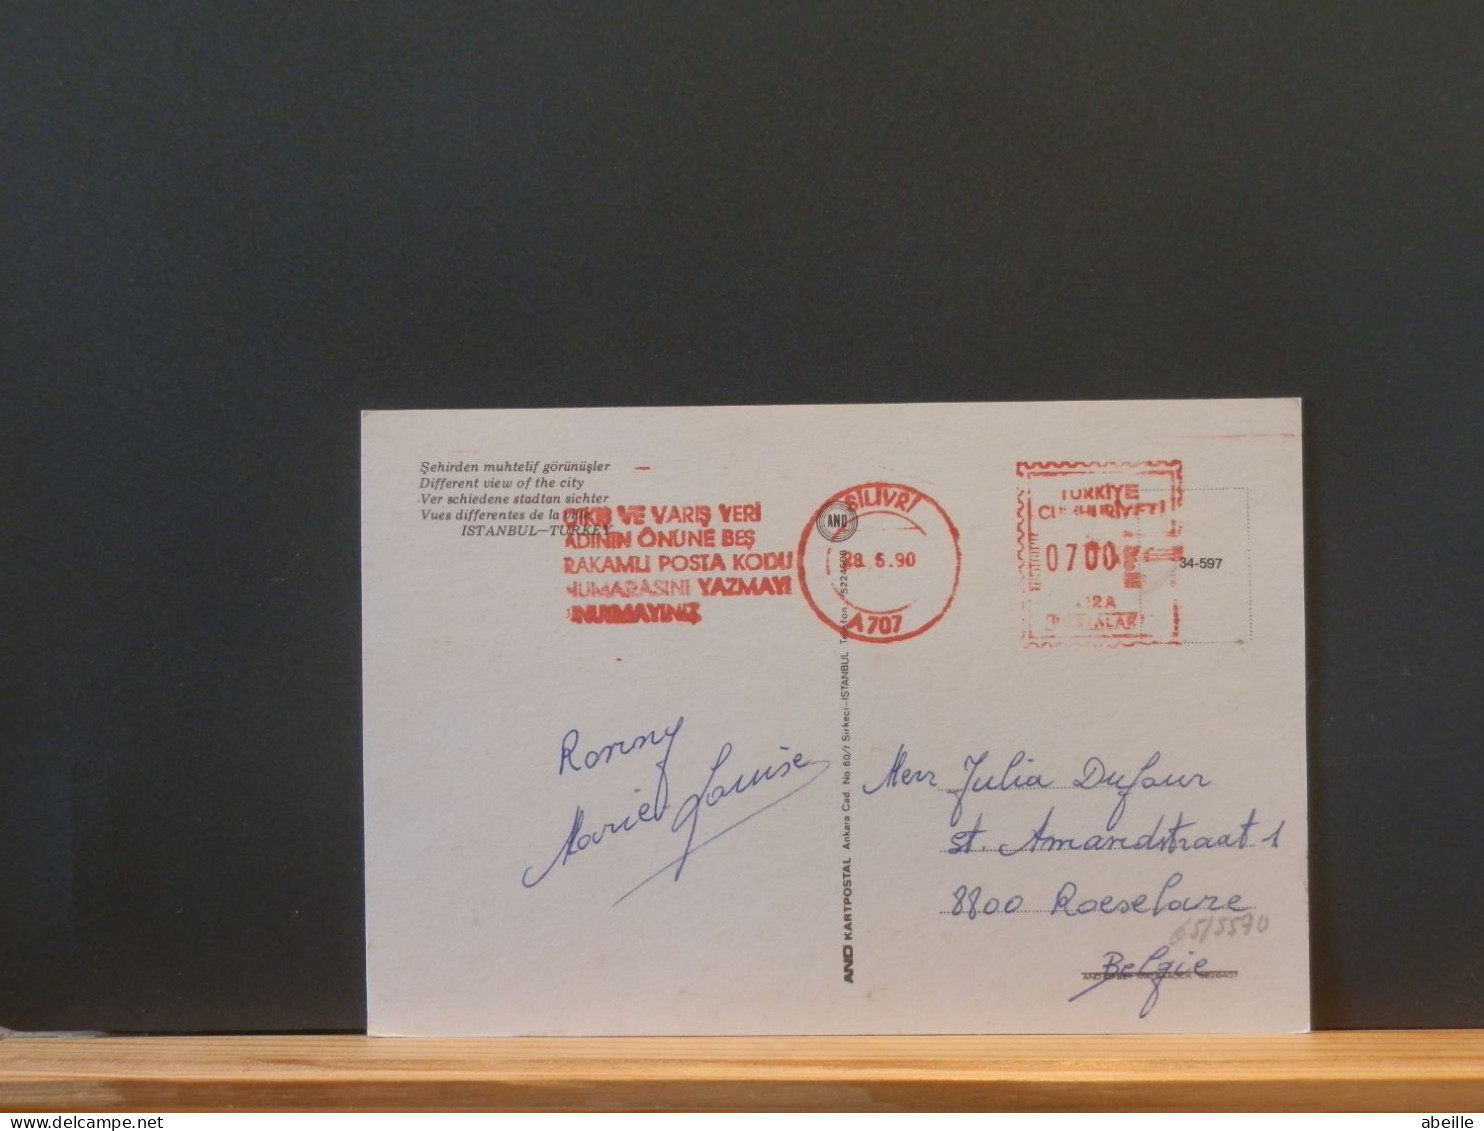 Şehirden muhtelif görünüşler
Different view of the city
Ver schiedene stadtan sichter
Vues differentes de la ville
ISTANBUL-TURKEY
VE VARIŞ YERİ
ADININ ÖNÜNE BEŞ
RAKAMLI POSTA KODU
NUMARASINI YAZMAYI
UNUTMAYINIZ
SİLİVRİ
28.6.90
A707
AND
TÜRKİYE
CUMHURİYETİ
0700
LİRA
34-597
AND KARTPOSTAL Ankara Cad. No.60/1 Sirkeci-ISTANBUL Telefon 5224508
Ronny
Marie-Louise
Mevr Julia Dufour
st. Amandstraat 1
8800 Roeselare
65/5570
Belgie
delcampe.net
abeille